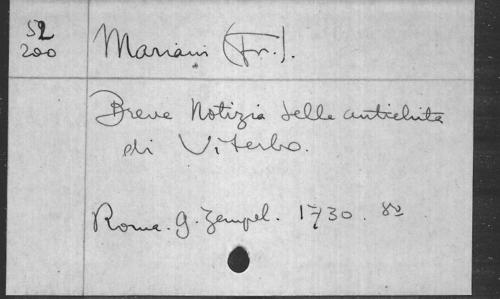 52
200
Mariani (Fr.).
Breve Notizia delle antichita
di Viterbo.
Roma. G. Zempel. 1730. 8º